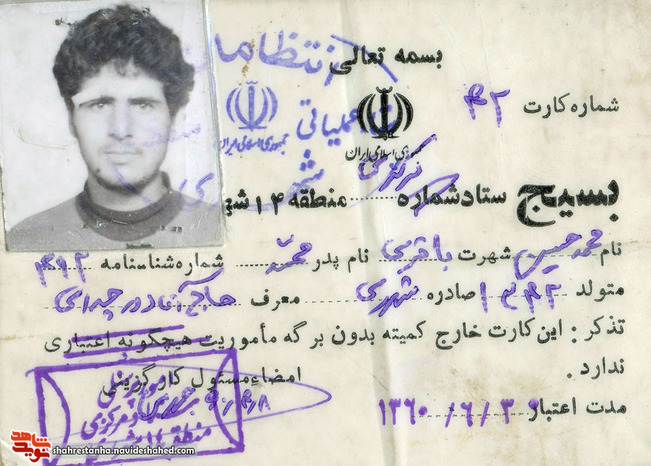 بسمه تعالی
انتظامات
شماره کارت ۴۲
عملیاتی
جمهوری اسلامی ایران
جمهوری اسلامی ایران
بسیج ستاد شماره مرکزی منطقه ۱۴ شهری
نام محمد حسین شهرت باقری نام پدر محمد شماره شناسنامه ۴۹۲
متولد ۱۳۴۲ صادره شهرری معرف حاج آقا
تذکر : این کارت خارج کمیته بدون برگه مأموریت هیچگونه اعتباری
ندارد .
امضاء مسئول کارگزینی
مدت اعتبار ۱۳۶۰/۶/۳۰
مرکزی
منطقه ۱۴
نوید شاهد
shahrestanha.navideshahed.com